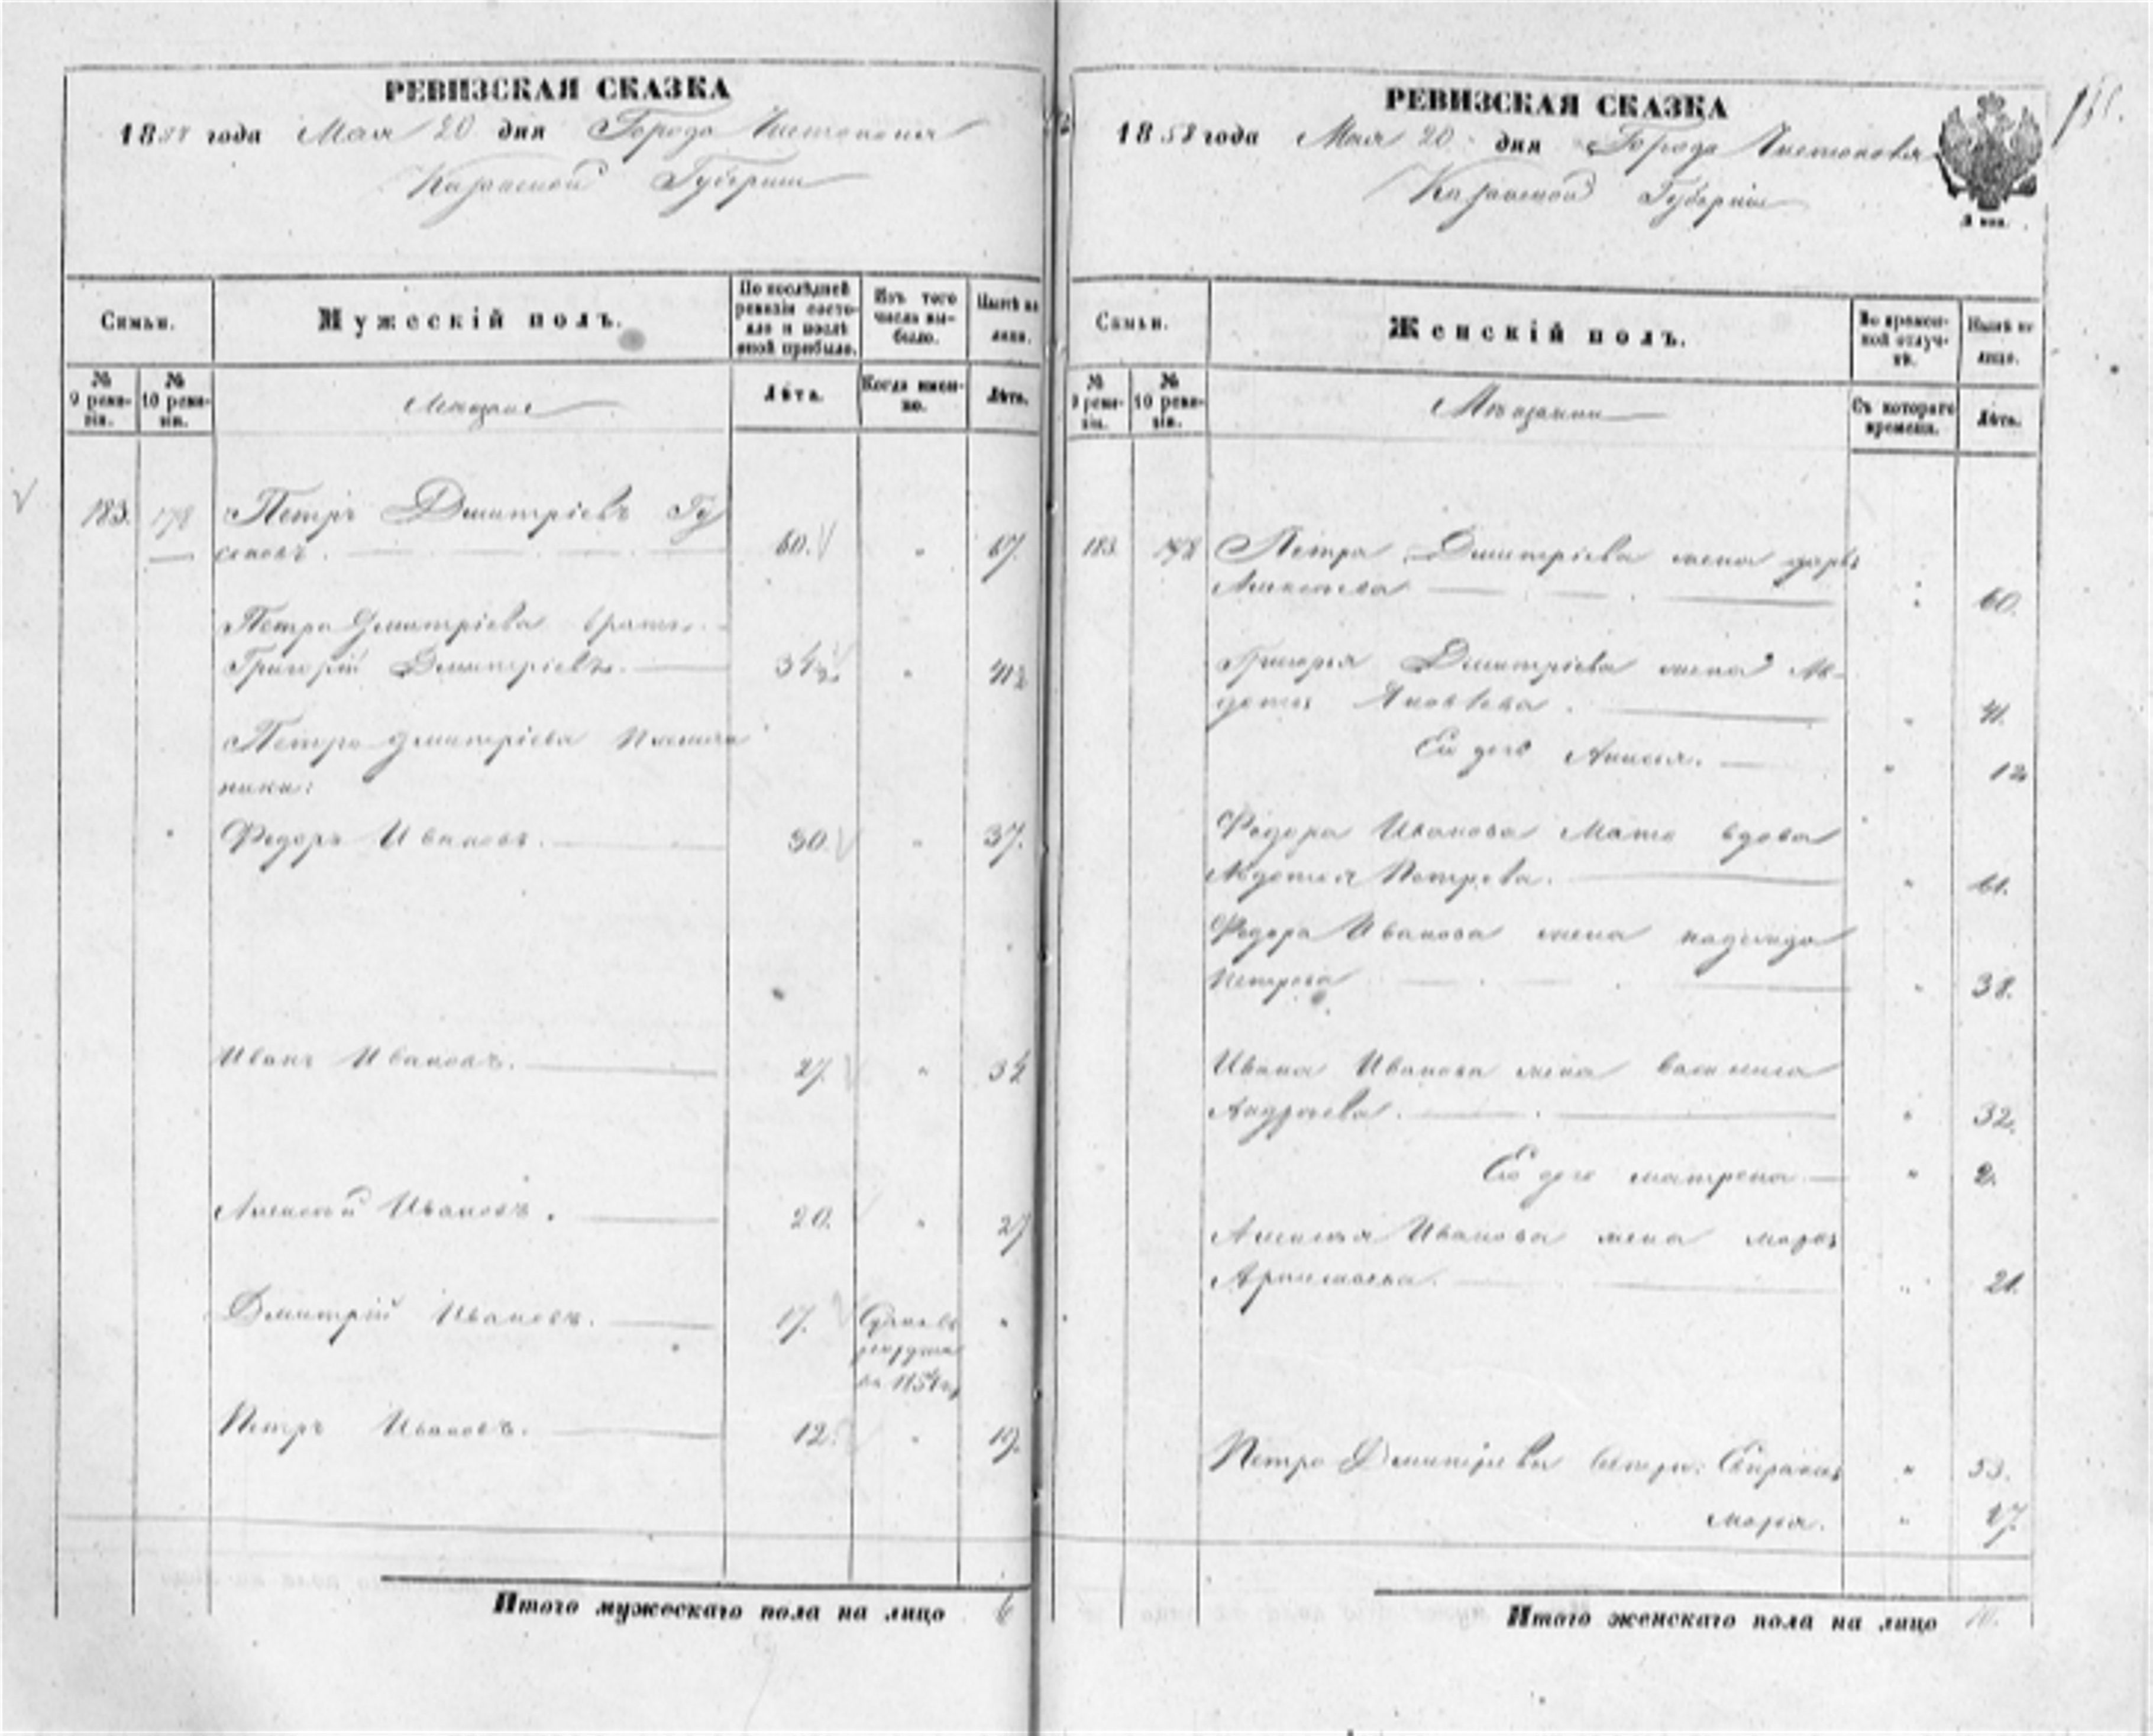 РЕВИЗСКАЯ СКАЗКА
1858 года Мая 20 дня Города Чистополя
Казанской Губернии
Семьи.
Мужескій полъ.
По послѣдней ревизіи состояло и послѣ оной прибыло.
Изъ того числа выбыло.
Нынѣ на лицо.
№ 9 ревизіи.
№ 10 ревизіи.
Мещане
Лѣта.
Когда именно.
Лѣта.
183. 178 Петръ Дмитріевъ Гу
сековъ. 60. " 67.
Петра Дмитріева братъ.
Григорій Дмитріевъ. 34½ " 41½
Петра Дмитріева племян
ники:
Федоръ Ивановъ. 30. " 37.
Иванъ Ивановъ. 27. " 34
Алексей Ивановъ. 20. " 27
Дмитрій Ивановъ. 17. "
Петръ Ивановъ. 12. " 19.
Итого мужескаго пола на лицо 6
РЕВИЗСКАЯ СКАЗКА
1858 года Мая 20 дня Города Чистополя
Казанской Губерніи
Семьи.
Женскій полъ.
Во временной отлучкѣ.
Нынѣ на лицо.
№ 9 ревизіи.
№ 10 ревизіи.
Мещанки
Съ котораго времени.
Лѣта.
183. 178 Петра Дмитріева жена дарья
Алексеева " 60.
Григорья Дмитріева жена Ав-
дотья Яковлева. " 41.
Ее дочь Анисья. " 12
Федора Иванова Мать вдова
Авдотья Петрова. " 61.
Федора Иванова жена надежда
Петрова " 38.
Ивана Иванова жена василиса
Андреева. " 32.
Ее дочь матрена " 2.
Алексея Иванова жена марья
" 21.
Петра Дмитріева сестры: " 53.
марья. " 47.
Итого женскаго пола на лицо 10.